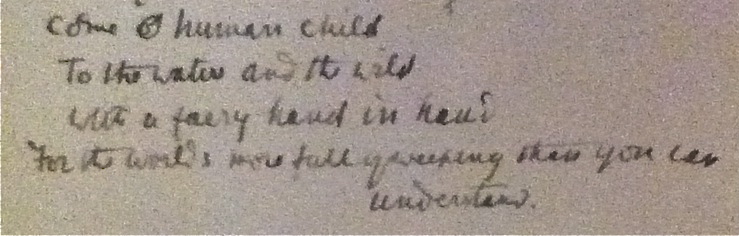 Come O human child
To the water and the wild
With a faery hand in hand
For the world's more full of weeping than you can
understand.